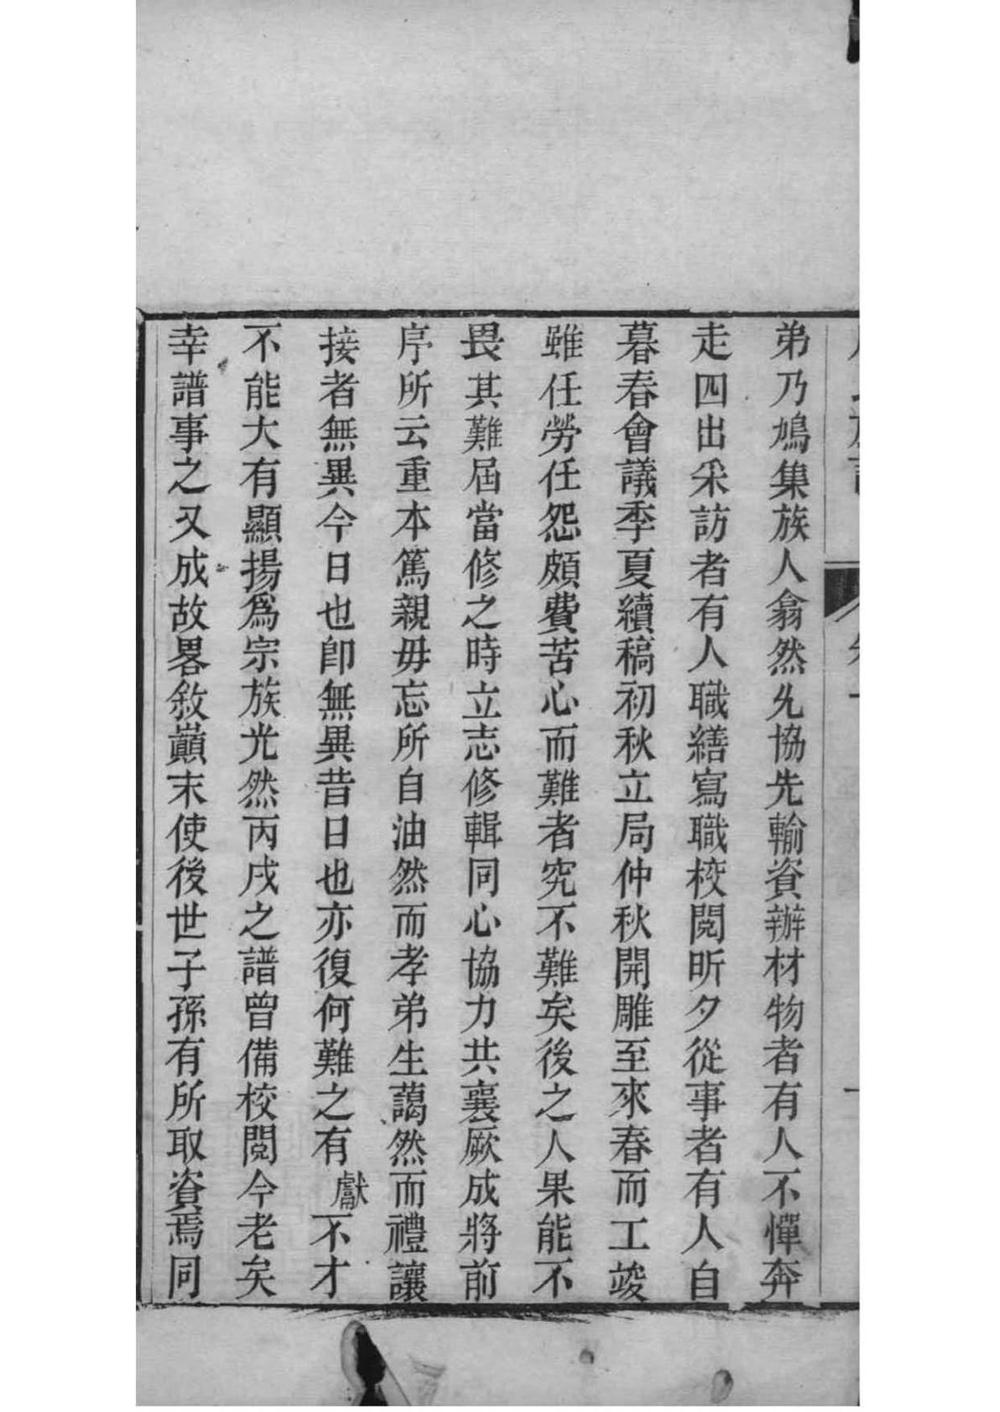 弟乃鳩集族人翕然允協先輸資辦材物者有人不憚奔
走四出采訪者有人職繕寫職校閱昕夕從事者有人自
暮春會議季夏續稿初秋立局仲秋開雕至來春而工竣
雖任勞任怨頗費苦心而難者究不難矣後之人果能不
畏其難屆當修之時立志修輯同心協力共襄厥成將前
序所云重本篤親毋忘所自油然而孝弟生藹然而禮讓
接者無異今日也卽無異昔日也亦復何難之有獻不才
不能大有顯揚爲宗族光然丙戌之譜曾備校閱今老矣
幸譜事之又成故畧敘巔末使後世子孫有所取資焉同